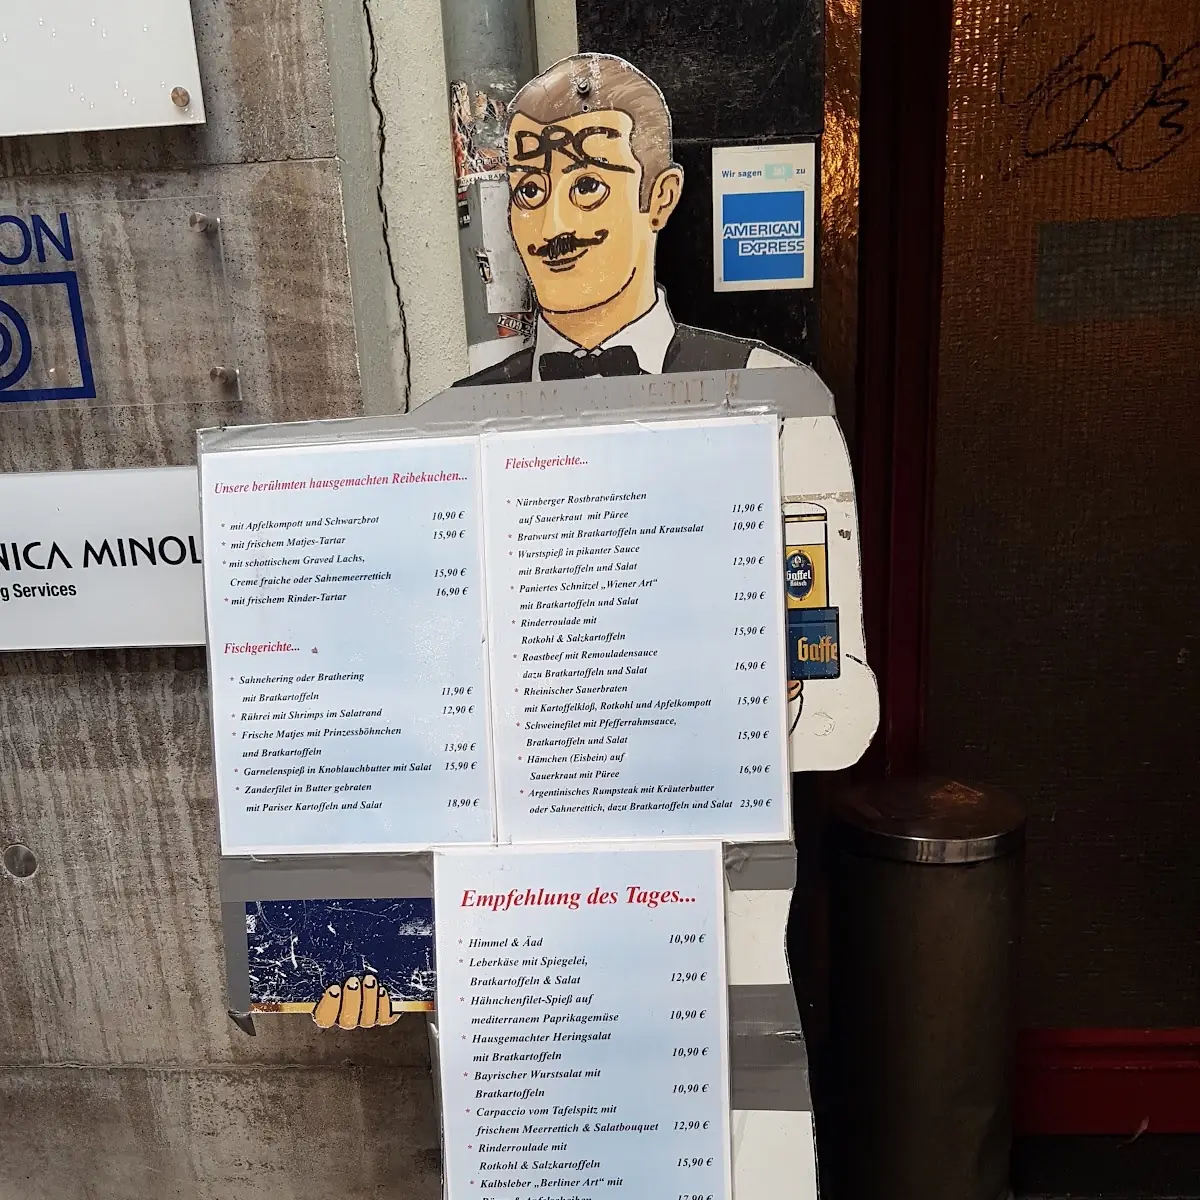 ON
NICA MINOL
g Services
DRC
Wir sagen ja zu
AMERICAN
EXPRESS
Unsere berühmten hausgemachten Reibekuchen...
* mit Apfelkompott und Schwarzbrot 10,90 €
* mit frischem Matjes-Tartar 15,90 €
* mit schottischem Graved Lachs,
Creme fraiche oder Sahnemeerrettich 15,90 €
* mit frischem Rinder-Tartar 16,90 €
Fischgerichte...
* Sahnehering oder Brathering
mit Bratkartoffeln 11,90 €
* Rührei mit Shrimps im Salatrand 12,90 €
* Frische Matjes mit Prinzessböhnchen
und Bratkartoffeln 13,90 €
* Garnelenspieß in Knoblauchbutter mit Salat 15,90 €
* Zanderfilet in Butter gebraten
mit Pariser Kartoffeln und Salat 18,90 €
Fleischgerichte...
* Nürnberger Rostbratwürstchen
auf Sauerkraut mit Püree 11,90 €
* Bratwurst mit Bratkartoffeln und Krautsalat 10,90 €
* Wurstspieß in pikanter Sauce
mit Bratkartoffeln und Salat 12,90 €
* Paniertes Schnitzel „Wiener Art"
mit Bratkartoffeln und Salat 12,90 €
* Rinderroulade mit
Rotkohl & Salzkartoffeln 15,90 €
* Roastbeef mit Remouladensauce
dazu Bratkartoffeln und Salat 16,90 €
* Rheinischer Sauerbraten
mit Kartoffelkloß, Rotkohl und Apfelkompott 15,90 €
* Schweinefilet mit Pfefferrahmsauce,
Bratkartoffeln und Salat 15,90 €
* Hämchen (Eisbein) auf
Sauerkraut mit Püree 16,90 €
* Argentinisches Rumpsteak mit Kräuterbutter
oder Sahnerettich, dazu Bratkartoffeln und Salat 23,90 €
Gaffel
Kölsch
Gaffe
Empfehlung des Tages...
* Himmel & Äad 10,90 €
* Leberkäse mit Spiegelei,
Bratkartoffeln & Salat 12,90 €
* Hähnchenfilet-Spieß auf
mediterranem Paprikagemüse 10,90 €
* Hausgemachter Heringsalat
mit Bratkartoffeln 10,90 €
* Bayrischer Wurstsalat mit
Bratkartoffeln 10,90 €
* Carpaccio vom Tafelspitz mit
frischem Meerrettich & Salatbouquet 12,90 €
* Rinderroulade mit
Rotkohl & Salzkartoffeln 15,90 €
* Kalbsleber „Berliner Art" mit
17,90 €